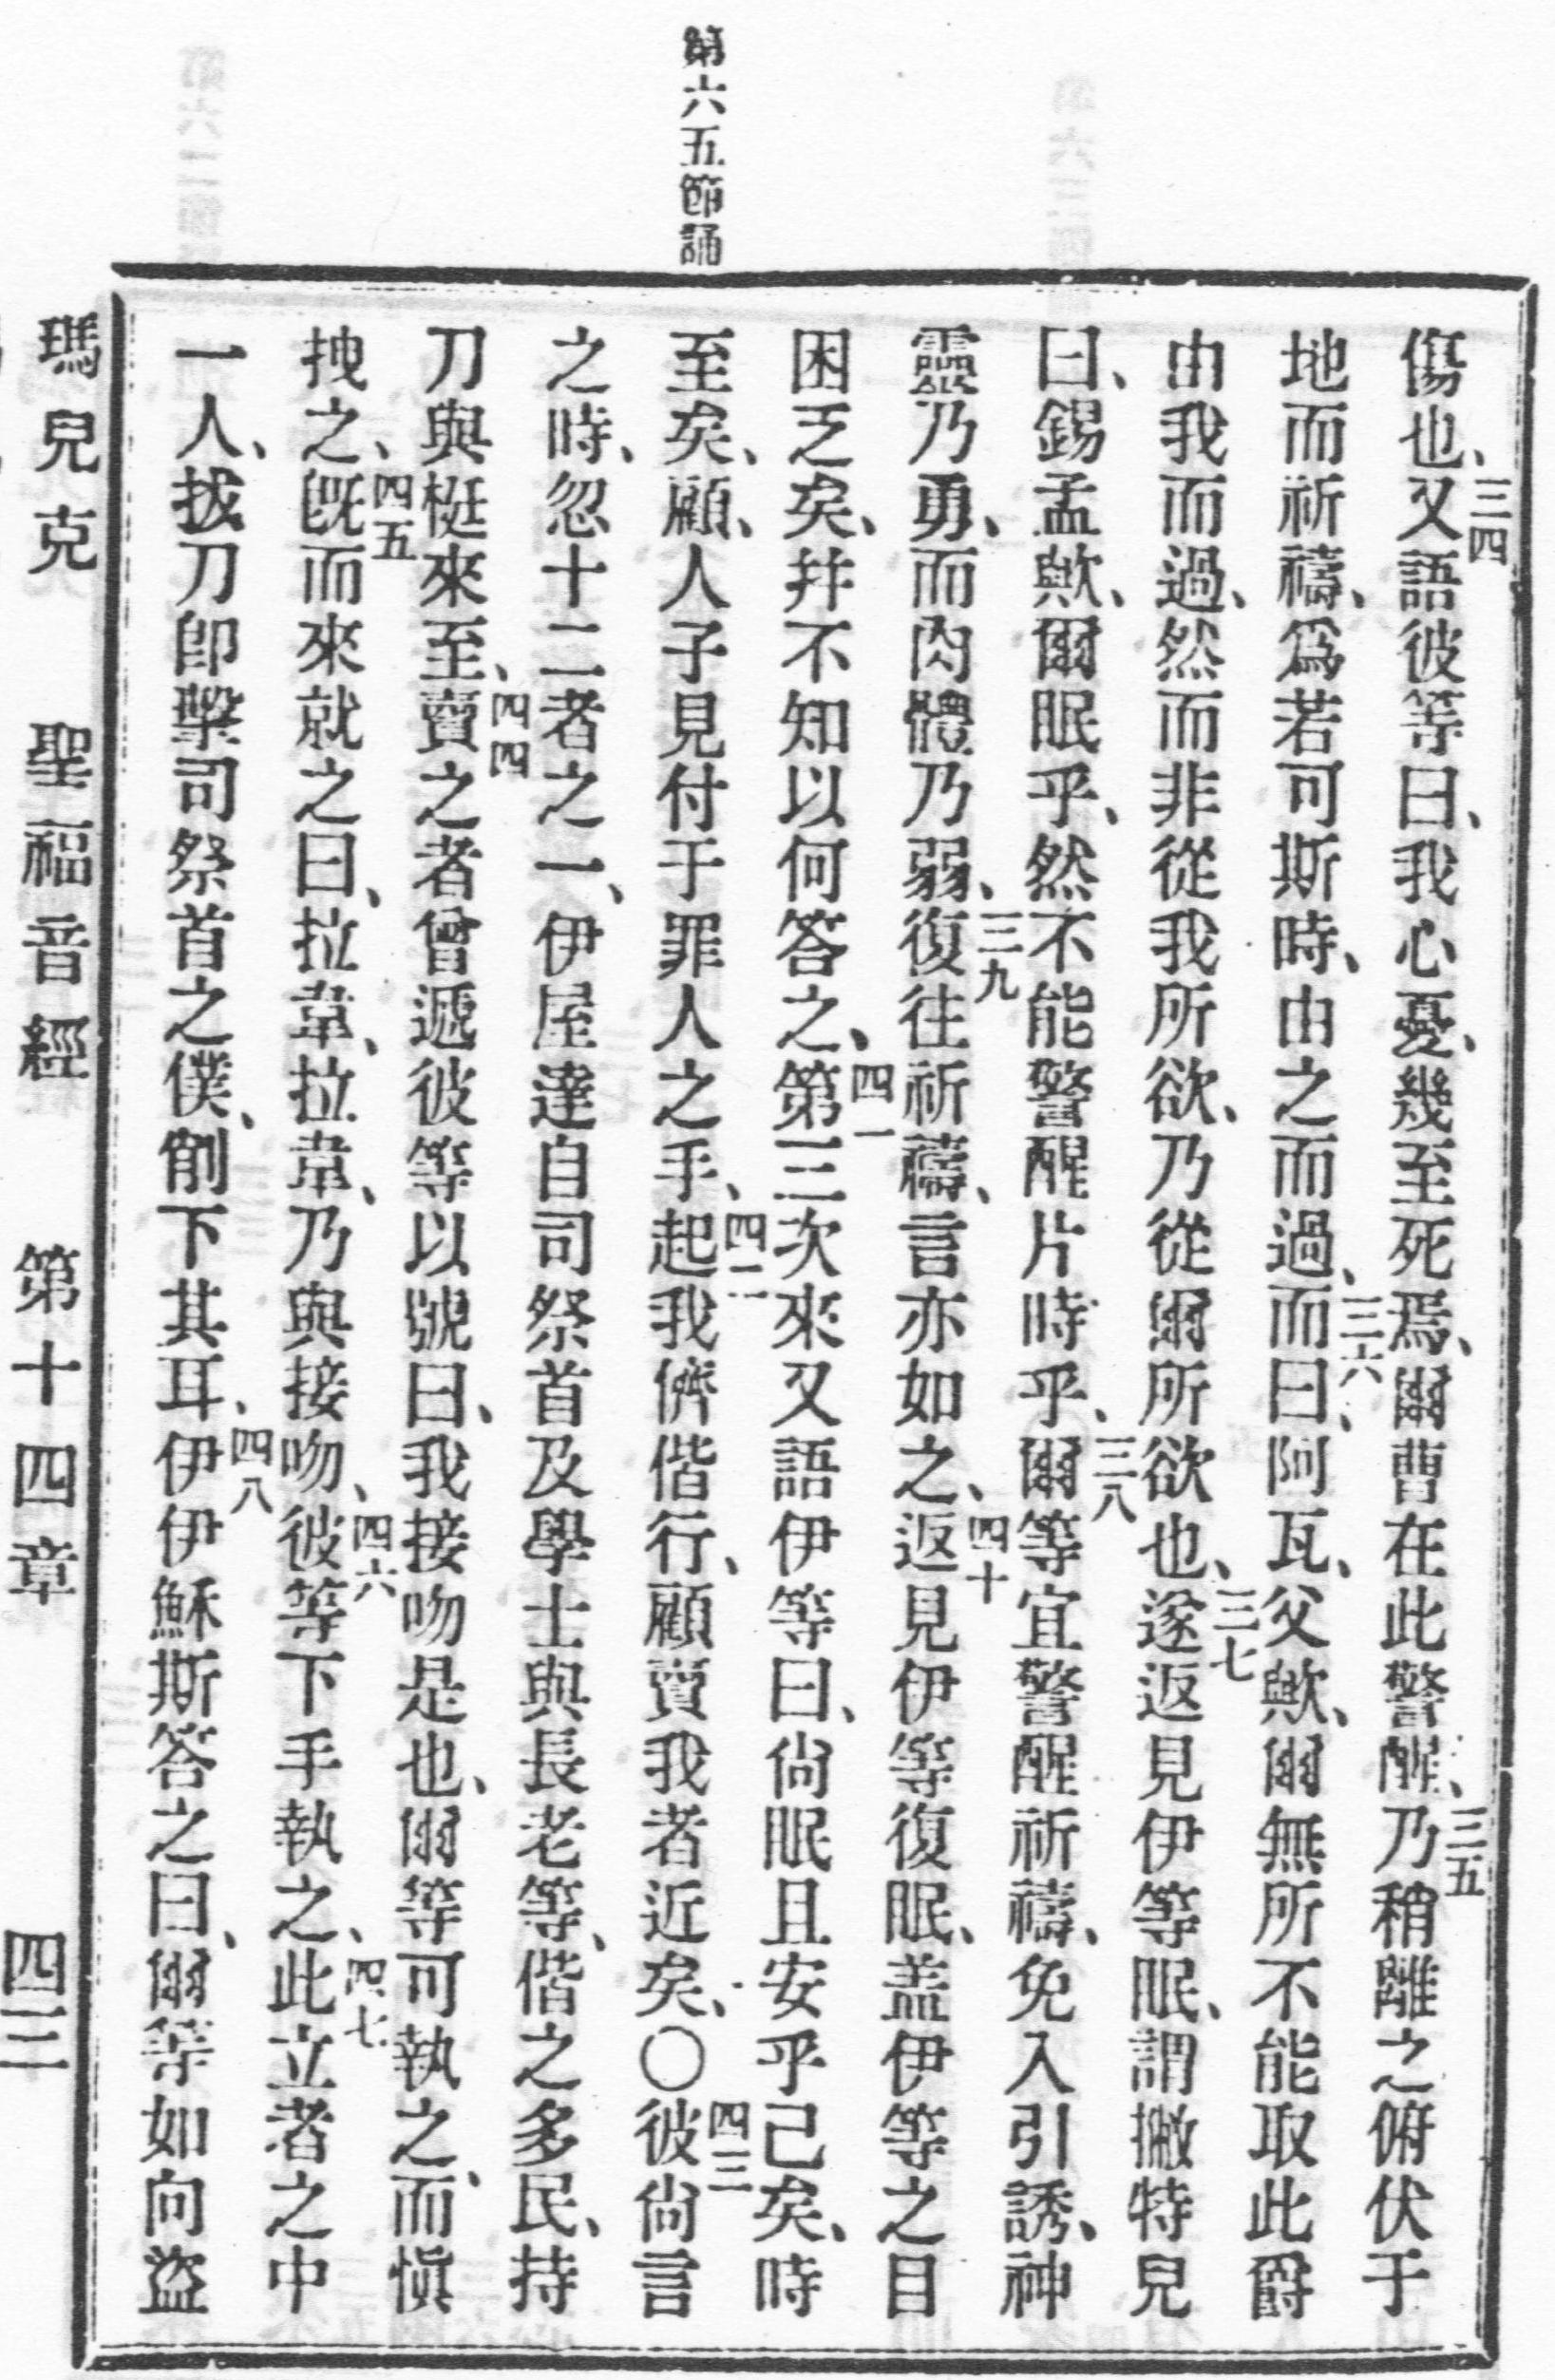 第六五節誦
傷也、三四又語彼等曰、我心憂、幾至死焉、爾曹在此警醒、三五乃稍離之俯伏于
地而祈禱、爲若可斯時、由之而過、三六而曰、阿瓦、父歟、爾無所不能取此爵
由我而過、然而非從我所欲、乃從爾所欲也、三七遂返見伊等眠、謂撇特兒
曰、錫孟歟、爾眠乎、然不能警醒片時乎、三八爾等宜警醒祈禱、免入引誘、神
靈乃勇、而肉體乃弱、三九復往祈禱、言亦如之、四十返見伊等復眠、盖伊等之目
困乏矣、幷不知以何答之、四一第三次來又語伊等曰、尙眠且安乎已矣、時
至矣、顧、人子見付于罪人之手、四二起我儕偕行、顧賣我者近矣、〇四三彼尙言
之時、忽十二者之一、伊屋達自司祭首及學士與長老等、偕之多民、持
刀與梃來至、四四賣之者曾遞彼等以號曰、我接吻是也、爾等可執之、而愼
拽之、四五旣而來就之曰、拉韋、拉韋、乃與接吻、四六彼等下手執之、四七此立者之中
一人、拔刀卽擊司祭首之僕、削下其耳、四八伊伊穌斯答之曰、爾等如向盜
瑪兒克 聖福音經 第十四章 四三